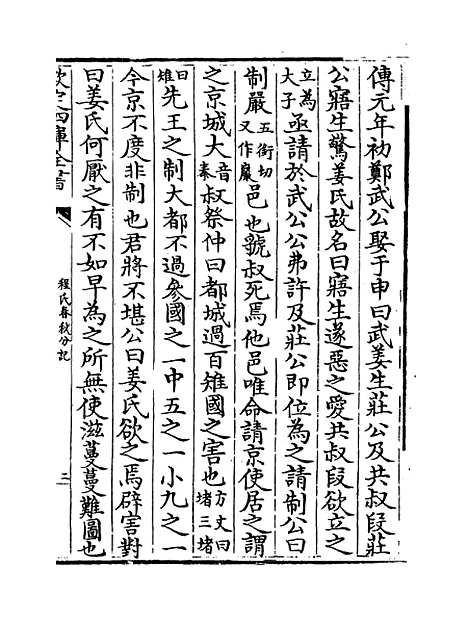 傳元年初鄭武公娶于申曰武姜生莊公及共叔段莊
公寤生驚姜氏故名曰寤生遂惡之愛共叔段欲立之
立為大子亟請於武公公弗許及莊公即位為之請制公曰
制嚴五銜切又作巖邑也虢叔死焉他邑唯命請京使居之謂
之京城大音泰叔祭仲曰都城過百雉國之害也方丈曰堵三堵
曰雉先王之制大都不過參國之一中五之一小九之一
今京不度非制也君將不堪公曰姜氏欲之焉辟害對
曰姜氏何厭之有不如早為之所無使滋蔓蔓難圖也
欽定四庫全書
程氏春秋分記
三